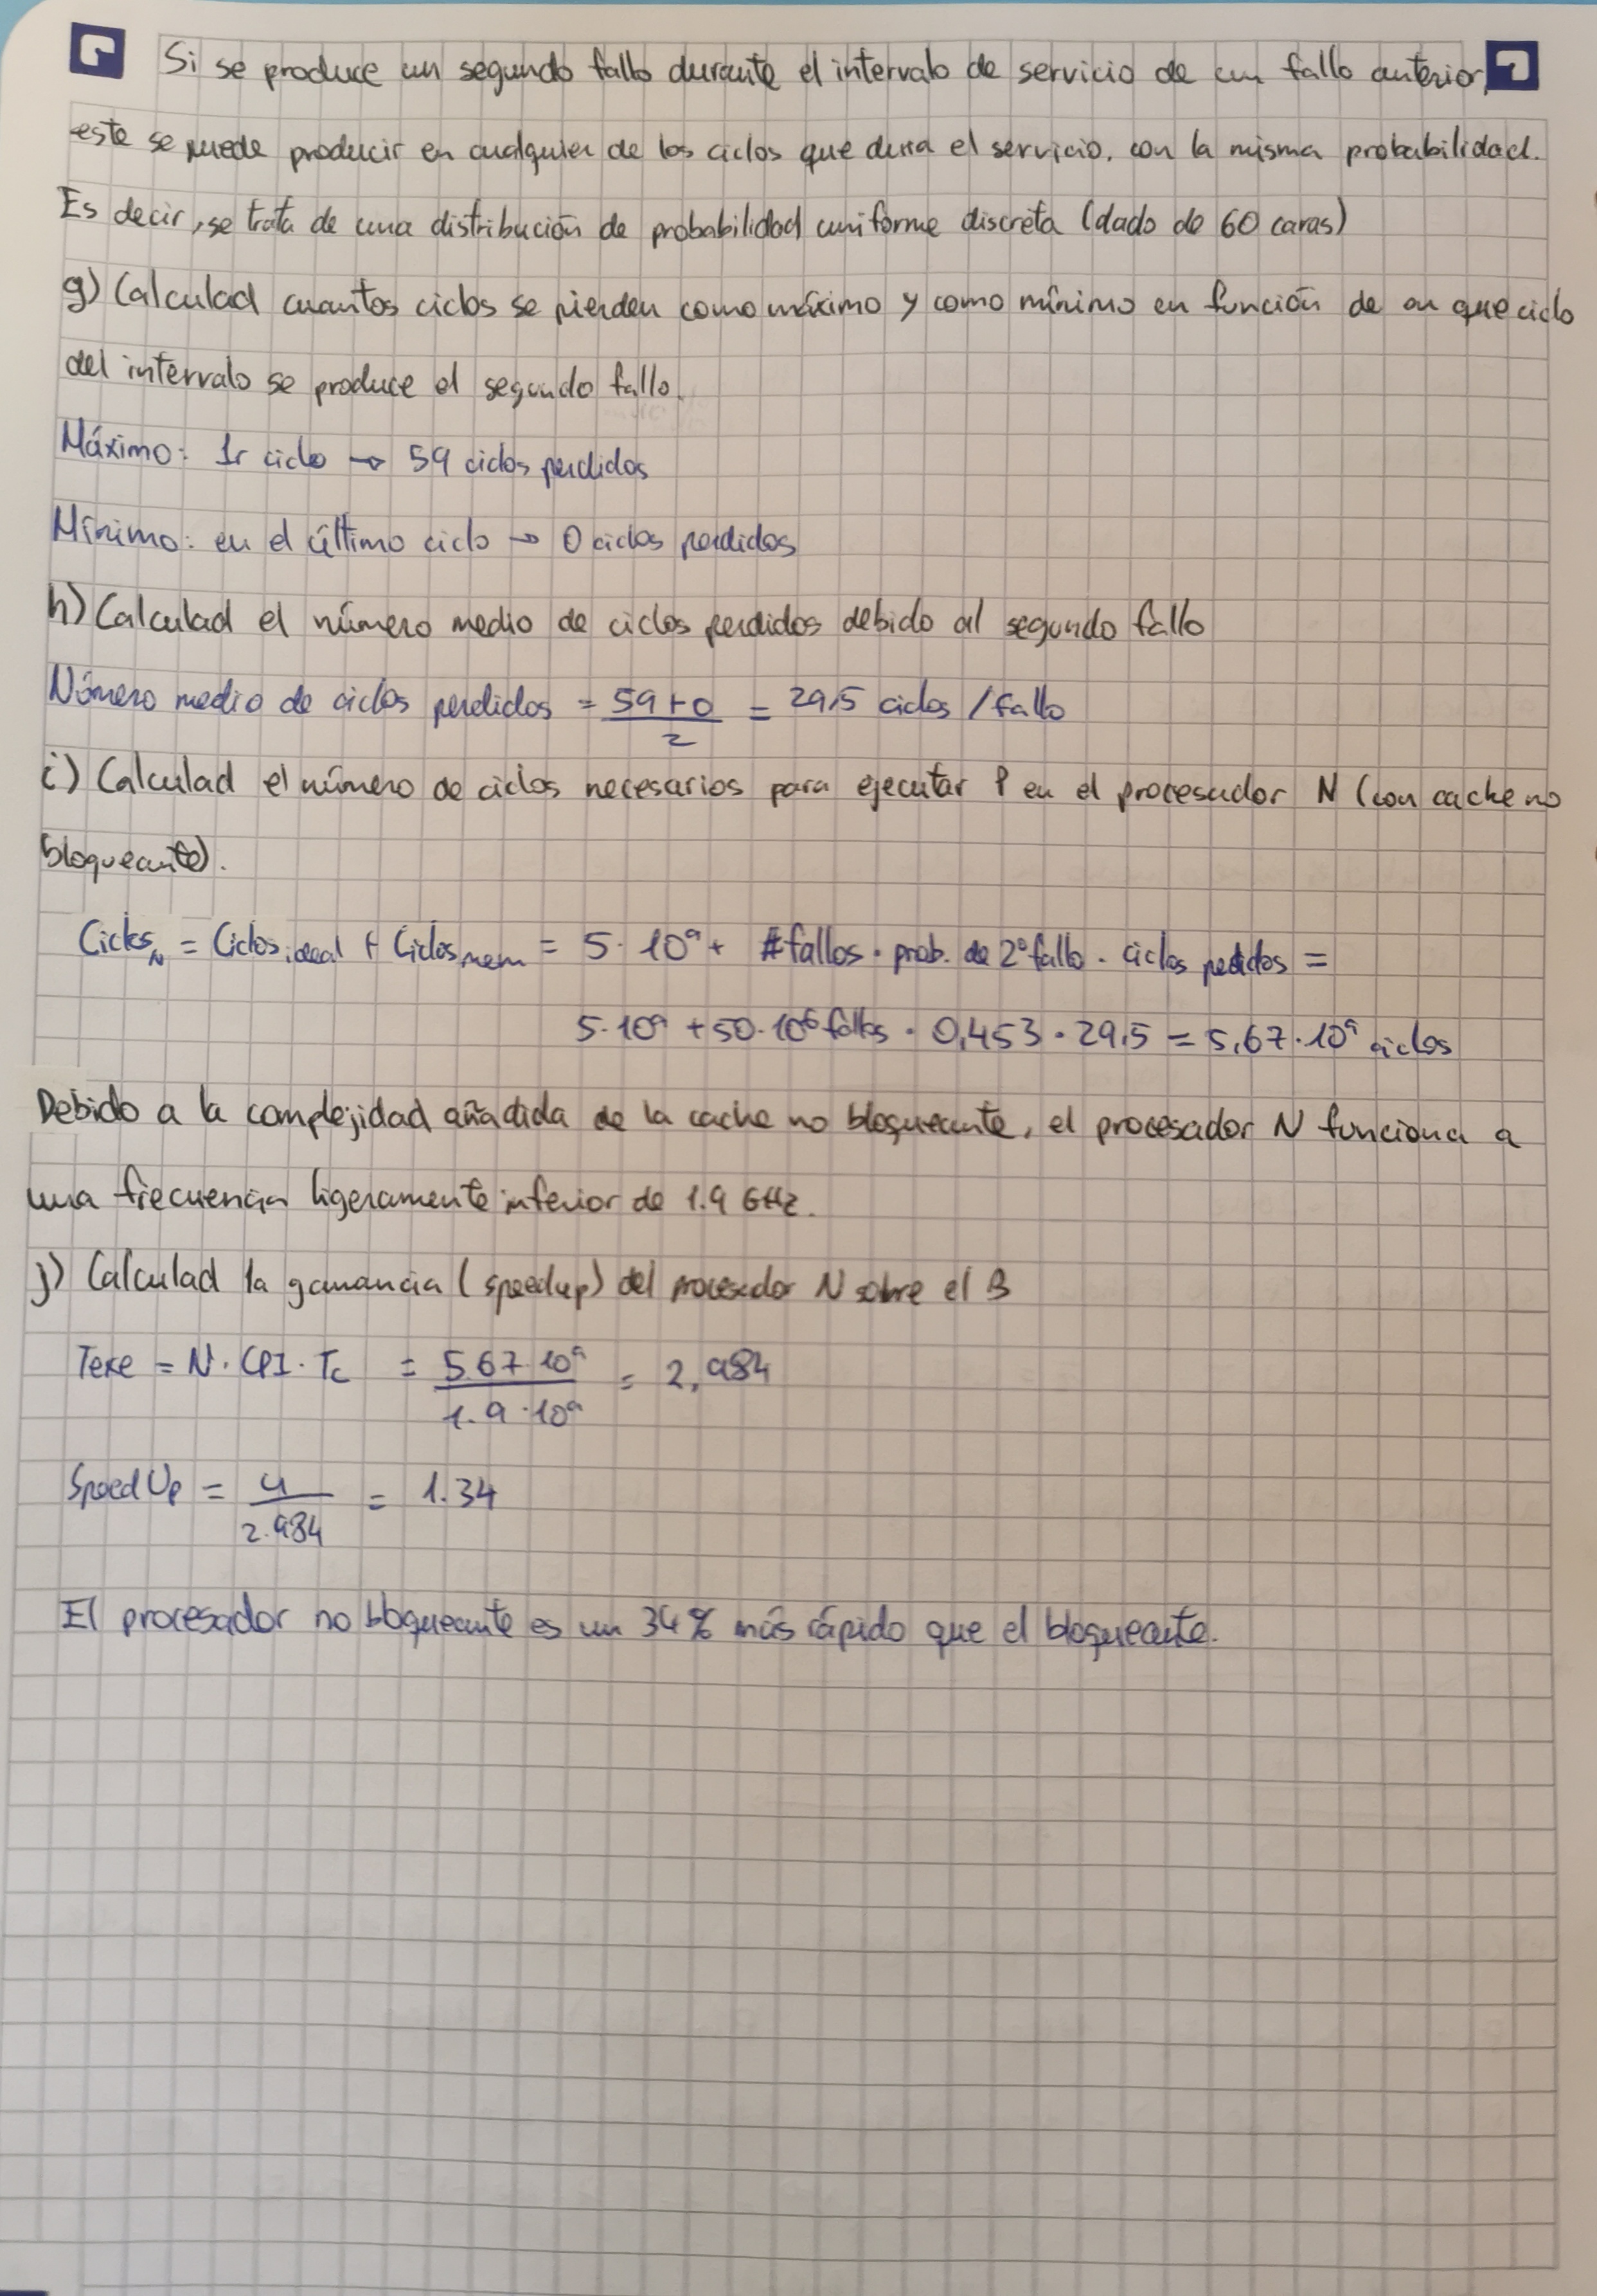 Si se produce un segundo fallo durante el intervalo de servicio de un fallo anterior,
este se puede producir en cualquier de los ciclos que dura el servicio, con la misma probabilidad.
Es decir, se trata de una distribución de probabilidad uniforme discreta (dado de 60 caras)
g) Calculad cuantos ciclos se pierden como máximo y como mínimo en función de en que ciclo
del intervalo se produce el segundo fallo.
Máximo: 1r ciclo → 59 ciclos perdidos
Mínimo: en el último ciclo → 0 ciclos perdidos
h) Calculad el número medio de ciclos perdidos debido al segundo fallo
Número medio de ciclos perdidos = (59+0)/2 = 29,5 ciclos / fallo
i) Calculad el número de ciclos necesarios para ejecutar P en el procesador N (con cache no
bloqueante).
Ciclos_N = Ciclos_ideal + Ciclos_mem = 5·10⁹ + #fallos · prob. de 2º fallo · ciclos perdidos =
5·10⁹ + 50·10⁶ fallos · 0,453 · 29,5 = 5,67·10⁹ ciclos
Debido a la complejidad añadida de la cache no bloqueante, el procesador N funciona a
una frecuencia ligeramente inferior de 1.9 GHz.
j) Calculad la ganancia (speedup) del procesador N sobre el B
Texe = N · CPI · Tc = 5.67·10⁹ / 1.9·10⁹ = 2,984
SpeedUp = 4 / 2.984 = 1.34
El procesador no bloqueante es un 34% más rápido que el bloqueante.